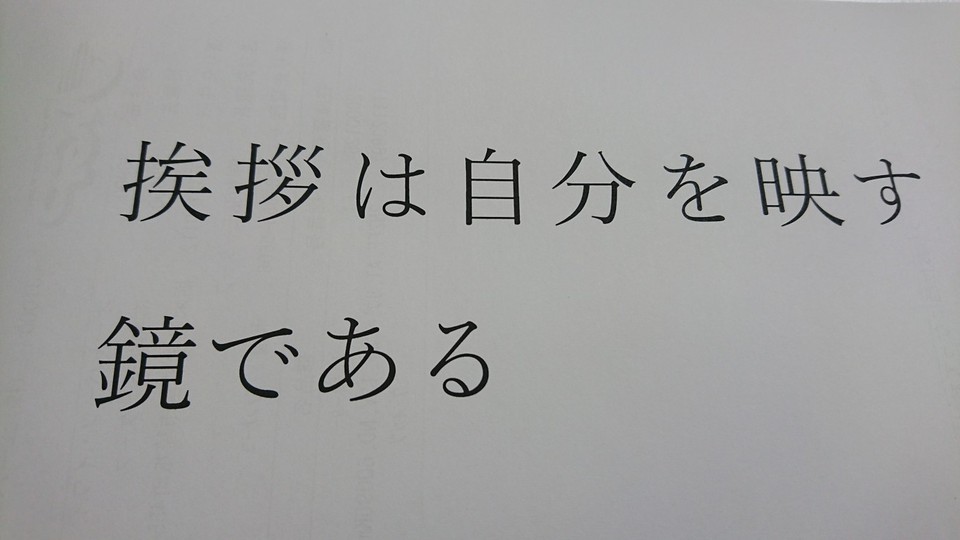 挨拶は自分を映す
鏡である